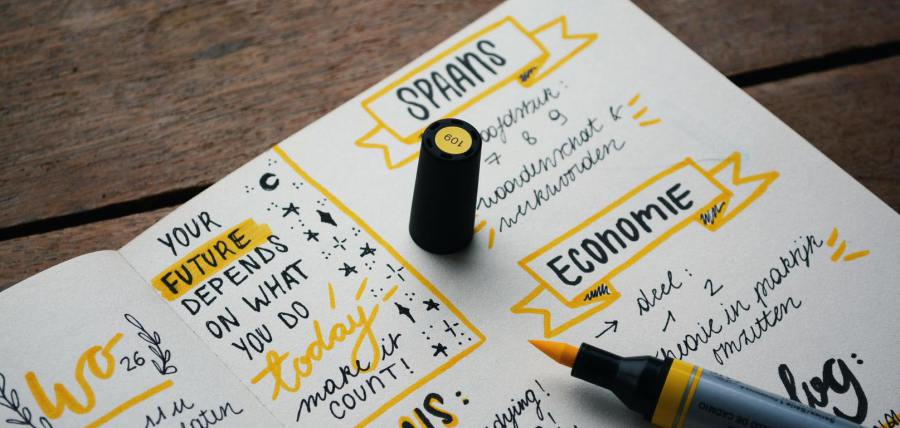 SPAANS
7 8 9
woordenschat &
werkwoorden
109
ECONOMIE
deel:
1 2
in praktijk
omzetten
YOUR
FUTURE
DEPENDS
ON WHAT
YOU DO
today
make it
COUNT!
WO
26
log: